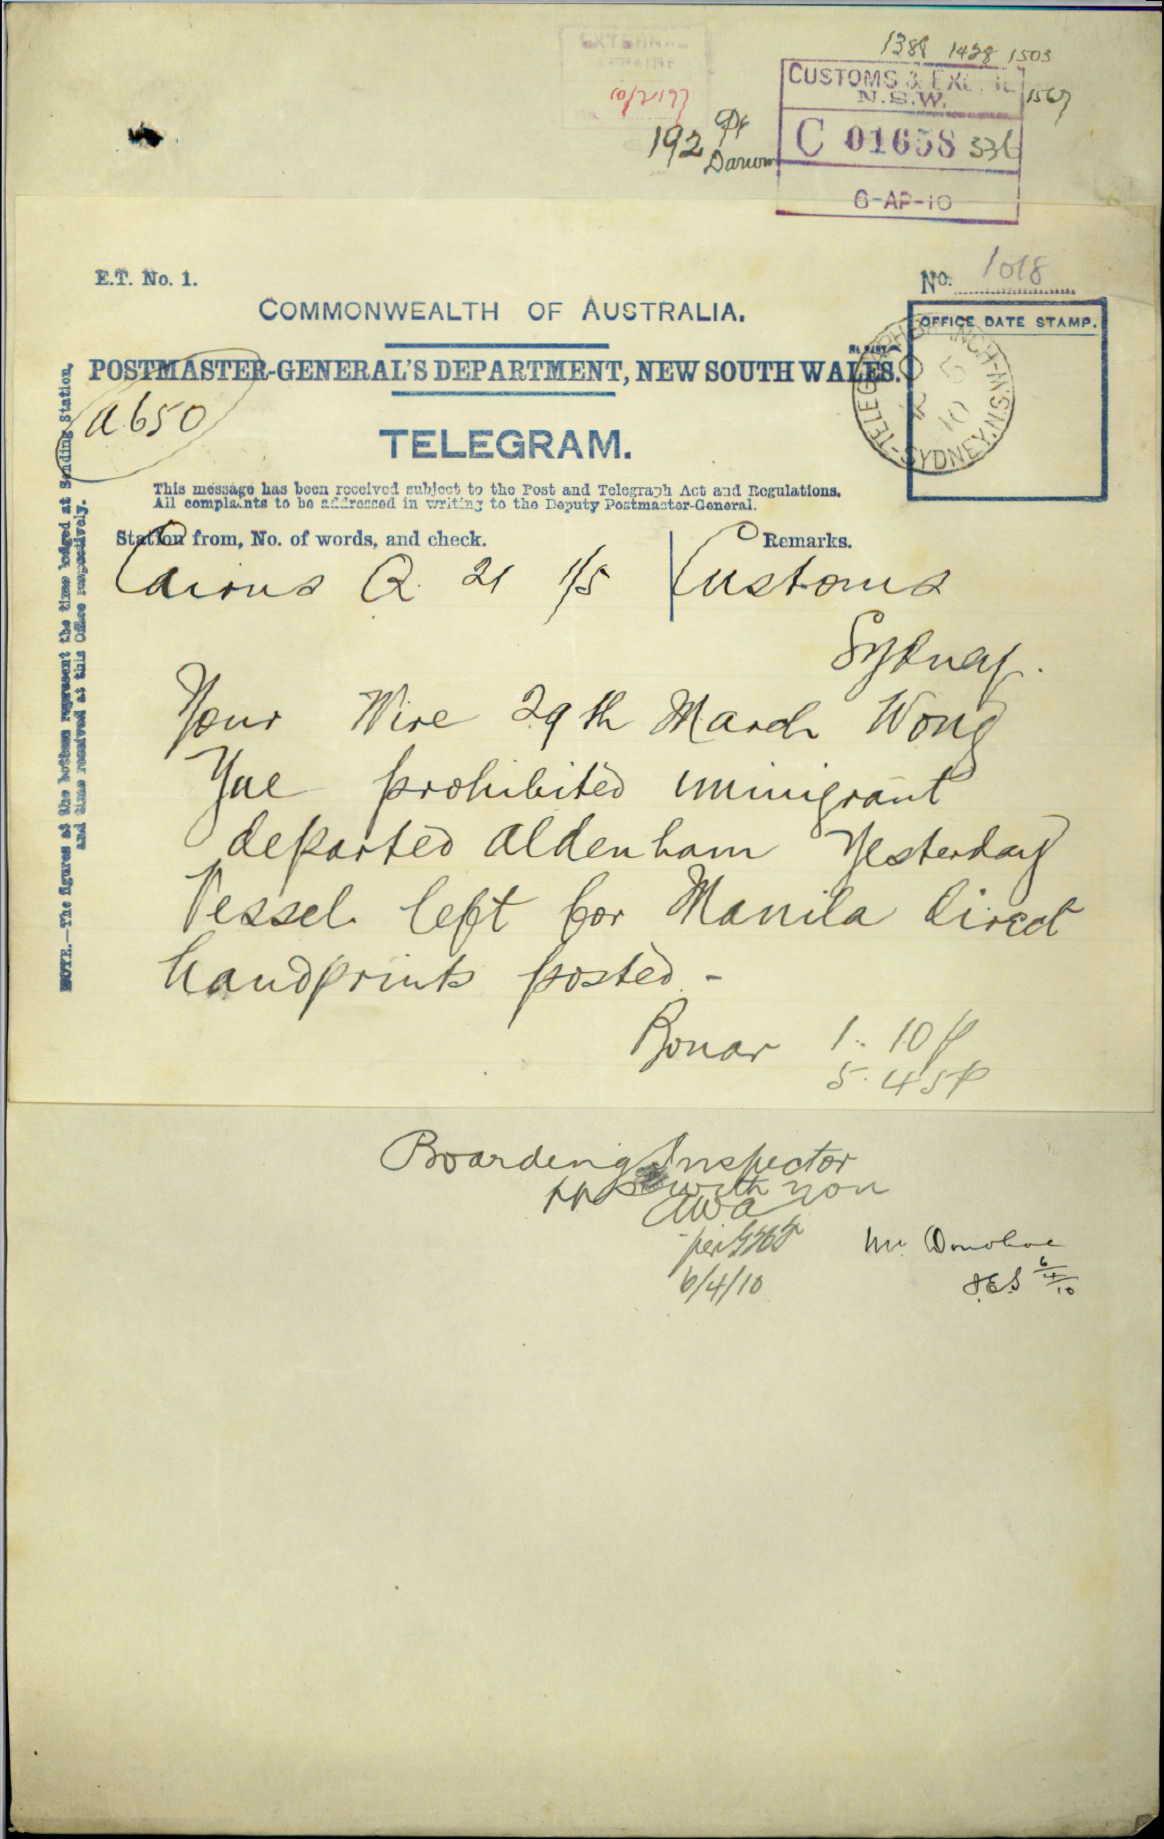 1388 1428 1503
1567
CUSTOMS & EXCISE
N.S.W.
C 01658 336
6-AP-10
192 Pt
Darwin
E.T. No. 1.
No. 1018
COMMONWEALTH OF AUSTRALIA.
OFFICE DATE STAMP.
POSTMASTER-GENERAL'S DEPARTMENT, NEW SOUTH WALES.
TELEGRAPH BRANCH-
SYDNEY.N.S.W
a 650
TELEGRAM.
This message has been received subject to the Post and Telegraph Act and Regulations.
All complaints to be addressed in writing to the Deputy Postmaster-General.
Station from, No. of words, and check.
Remarks.
Cairns Q 21 1/5 Customs
Sydney.
Your Wire 29th March Wong
Yue prohibited immigrant
departed Aldenham Yesterday
Vessel left for Manila direct
handprints posted -
Bonar 1. 10 p
5. 45 p
NOTE.—The figures at the bottom represent the time lodged at Sending Station,
and time received at this Office respectively.
Boarding Inspector
with you
per
6/4/10
Mr. Donohoe
J.E.S 6/4/10